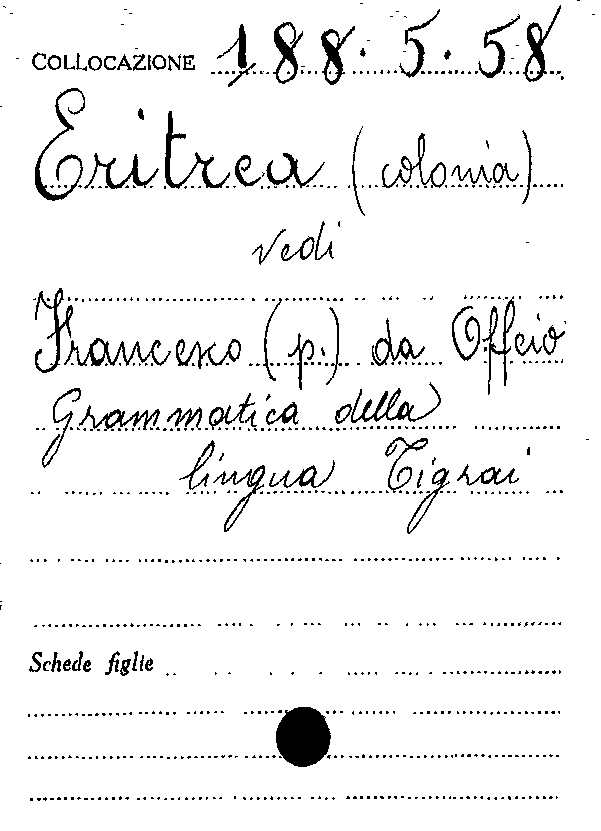 COLLOCAZIONE 188.5.58
Eritrea (colonia)
vedi
Francesco (p.) da Offeio
Grammatica della
lingua Tigrai
Schede figlie